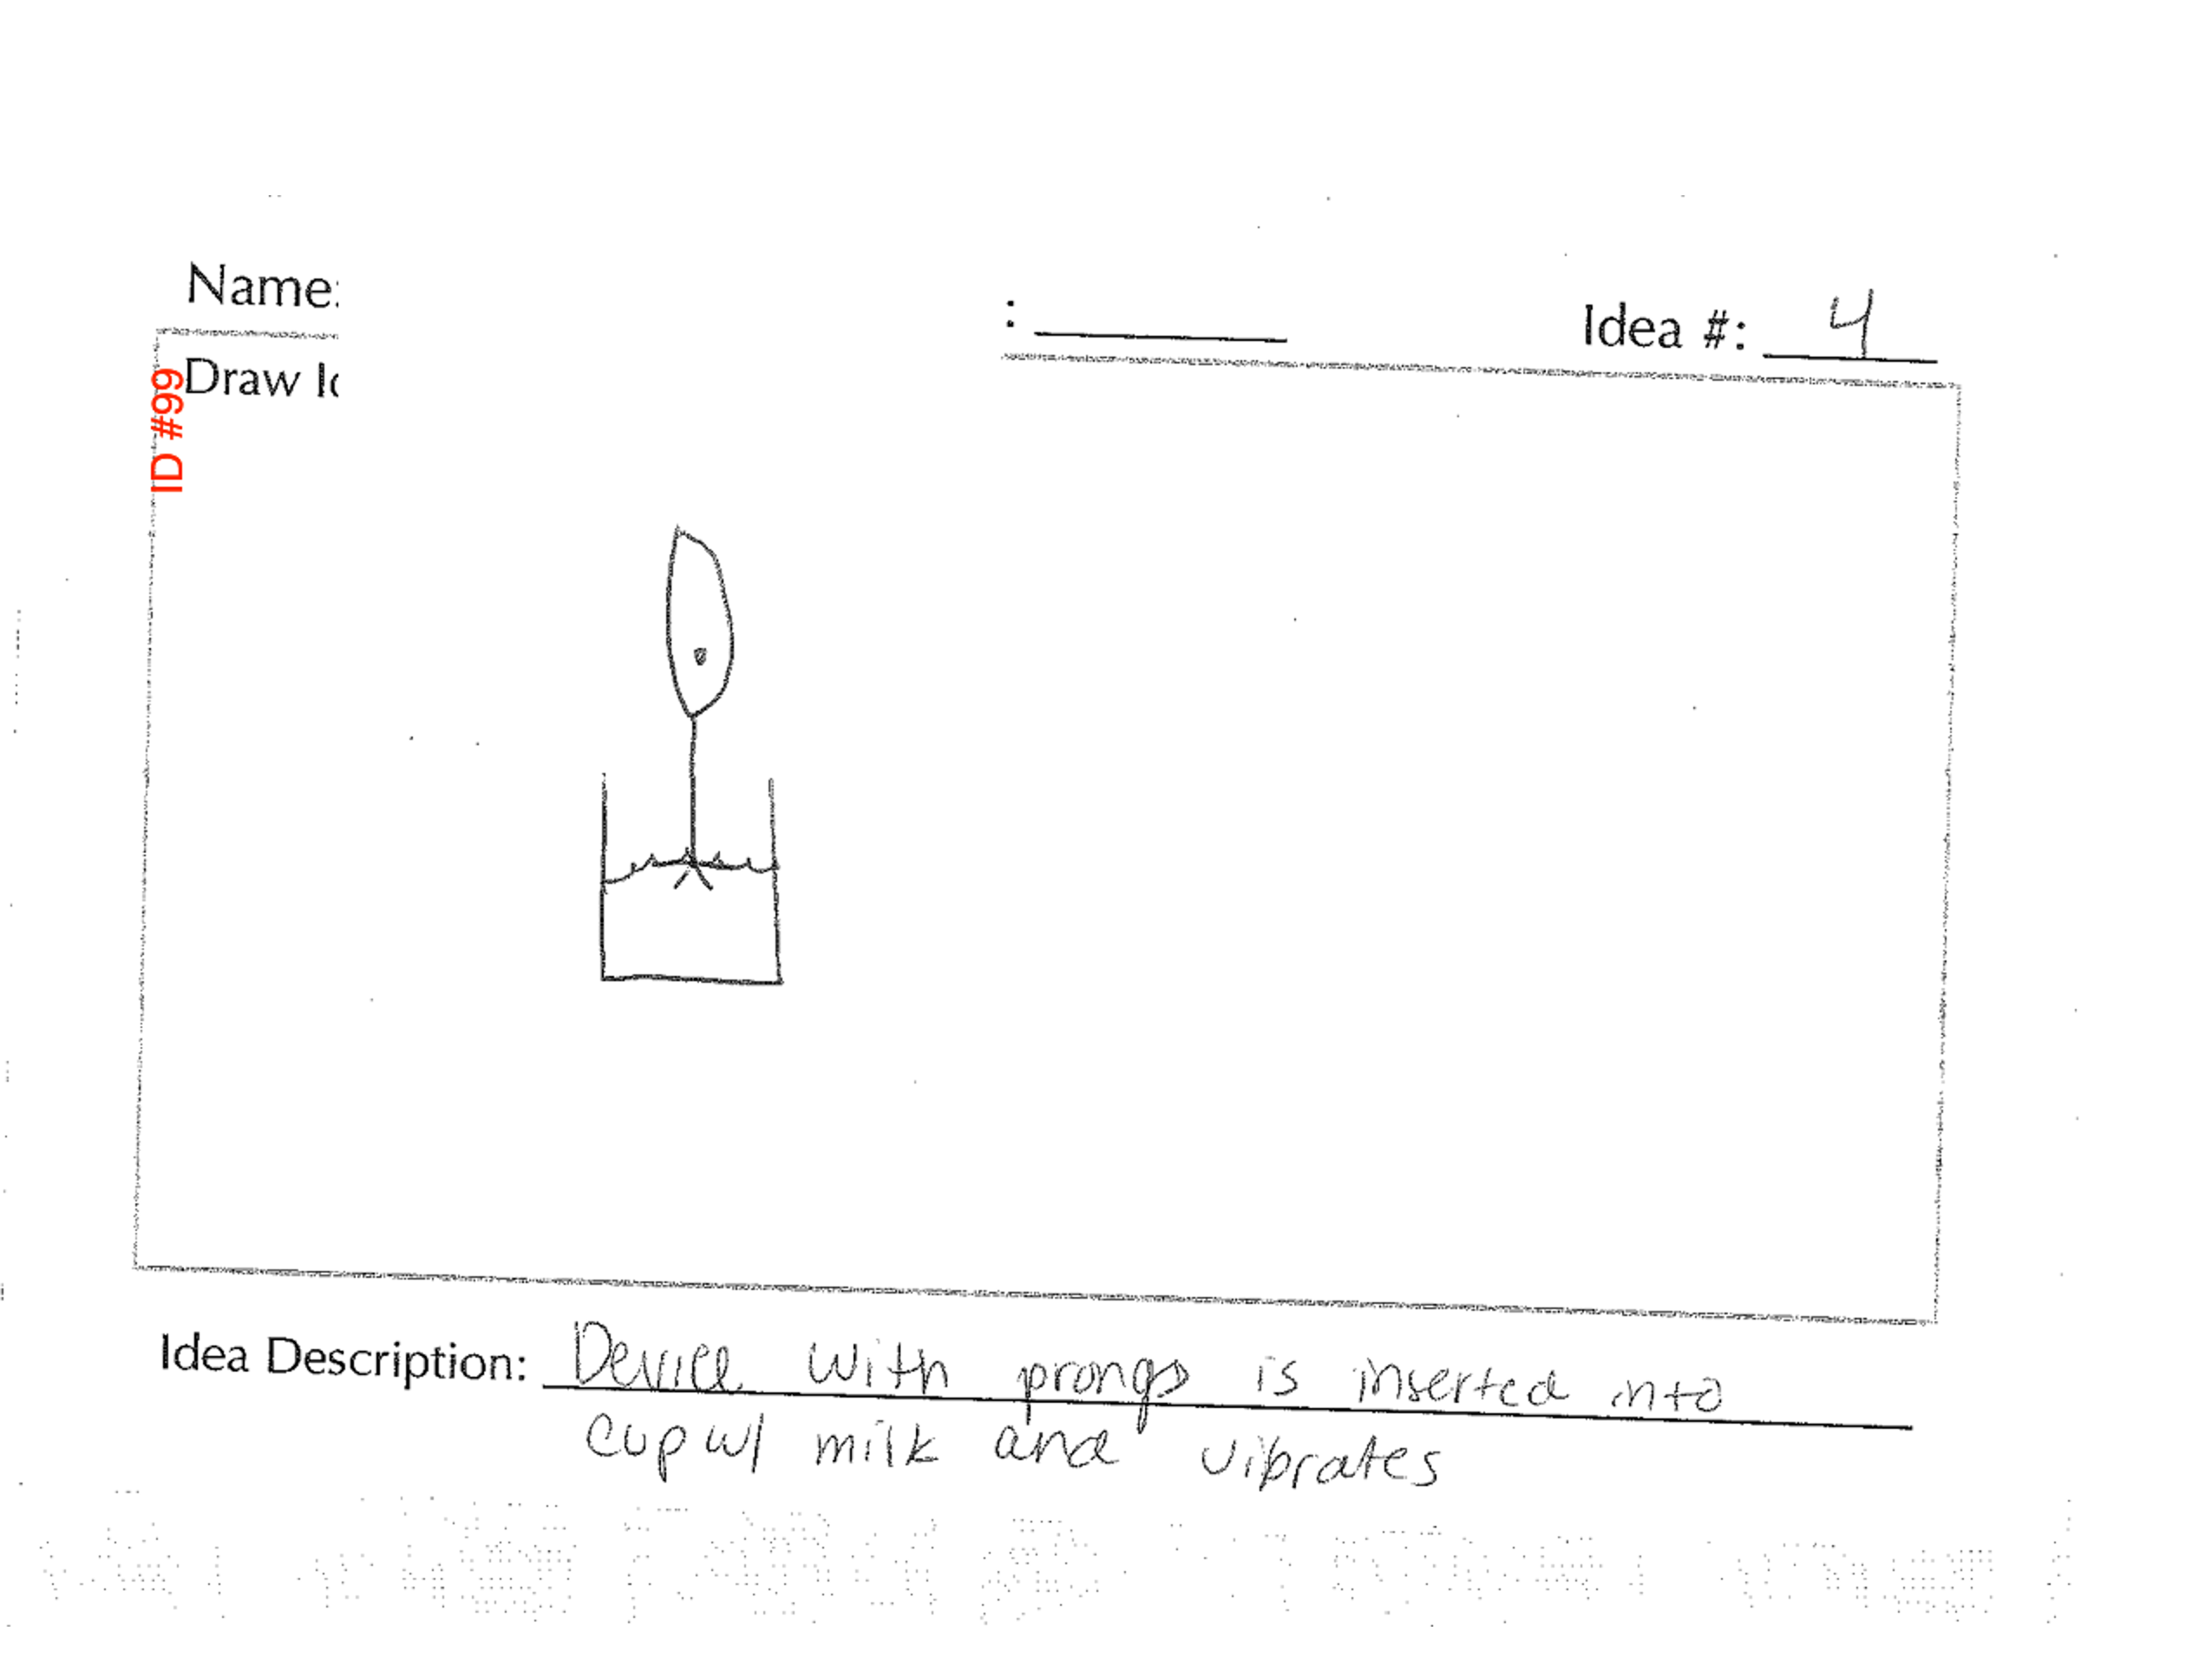 Name:
: Idea #: 4
Draw Id
ID #99
Idea Description: Device with prongs is inserted into
cup w/ milk and vibrates